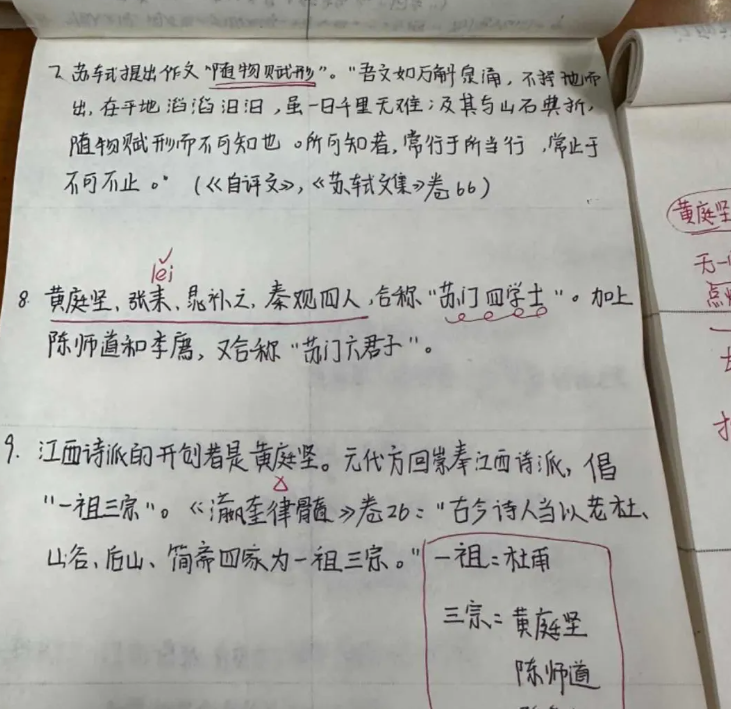 7. 苏轼提出作文"随物赋形"。"吾文如万斛泉涌，不择地而
出，在平地滔滔汩汩，虽一日千里无难；及其与山石曲折，
随物赋形而不可知也。所可知者，常行于所当行，常止于
不可不止。"（《自评文》，《苏轼文集》卷66）
lei
8. 黄庭坚、张耒、晁补之、秦观四人，合称"苏门四学士"。加上
陈师道和李廌，又合称"苏门六君子"。
9. 江西诗派的开创者是黄庭坚。元代方回崇奉江西诗派，倡
"一祖三宗"。《瀛奎律髓》卷26："古今诗人当以老杜、
山谷、后山、简斋四家为一祖三宗。"
一祖：杜甫
三宗：黄庭坚
陈师道
黄庭坚